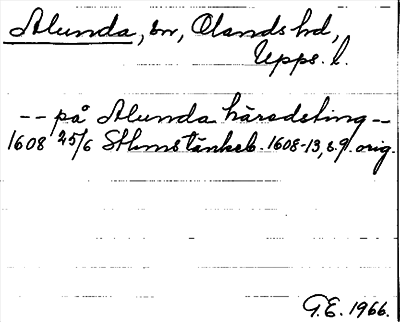 Alunda, sn, Olands hd,
Upps. l.
-- på Alunda häradsting --
1608 25/6 Sthms tänkeb. 1608-13, s.9. orig.
G.E. 1966.